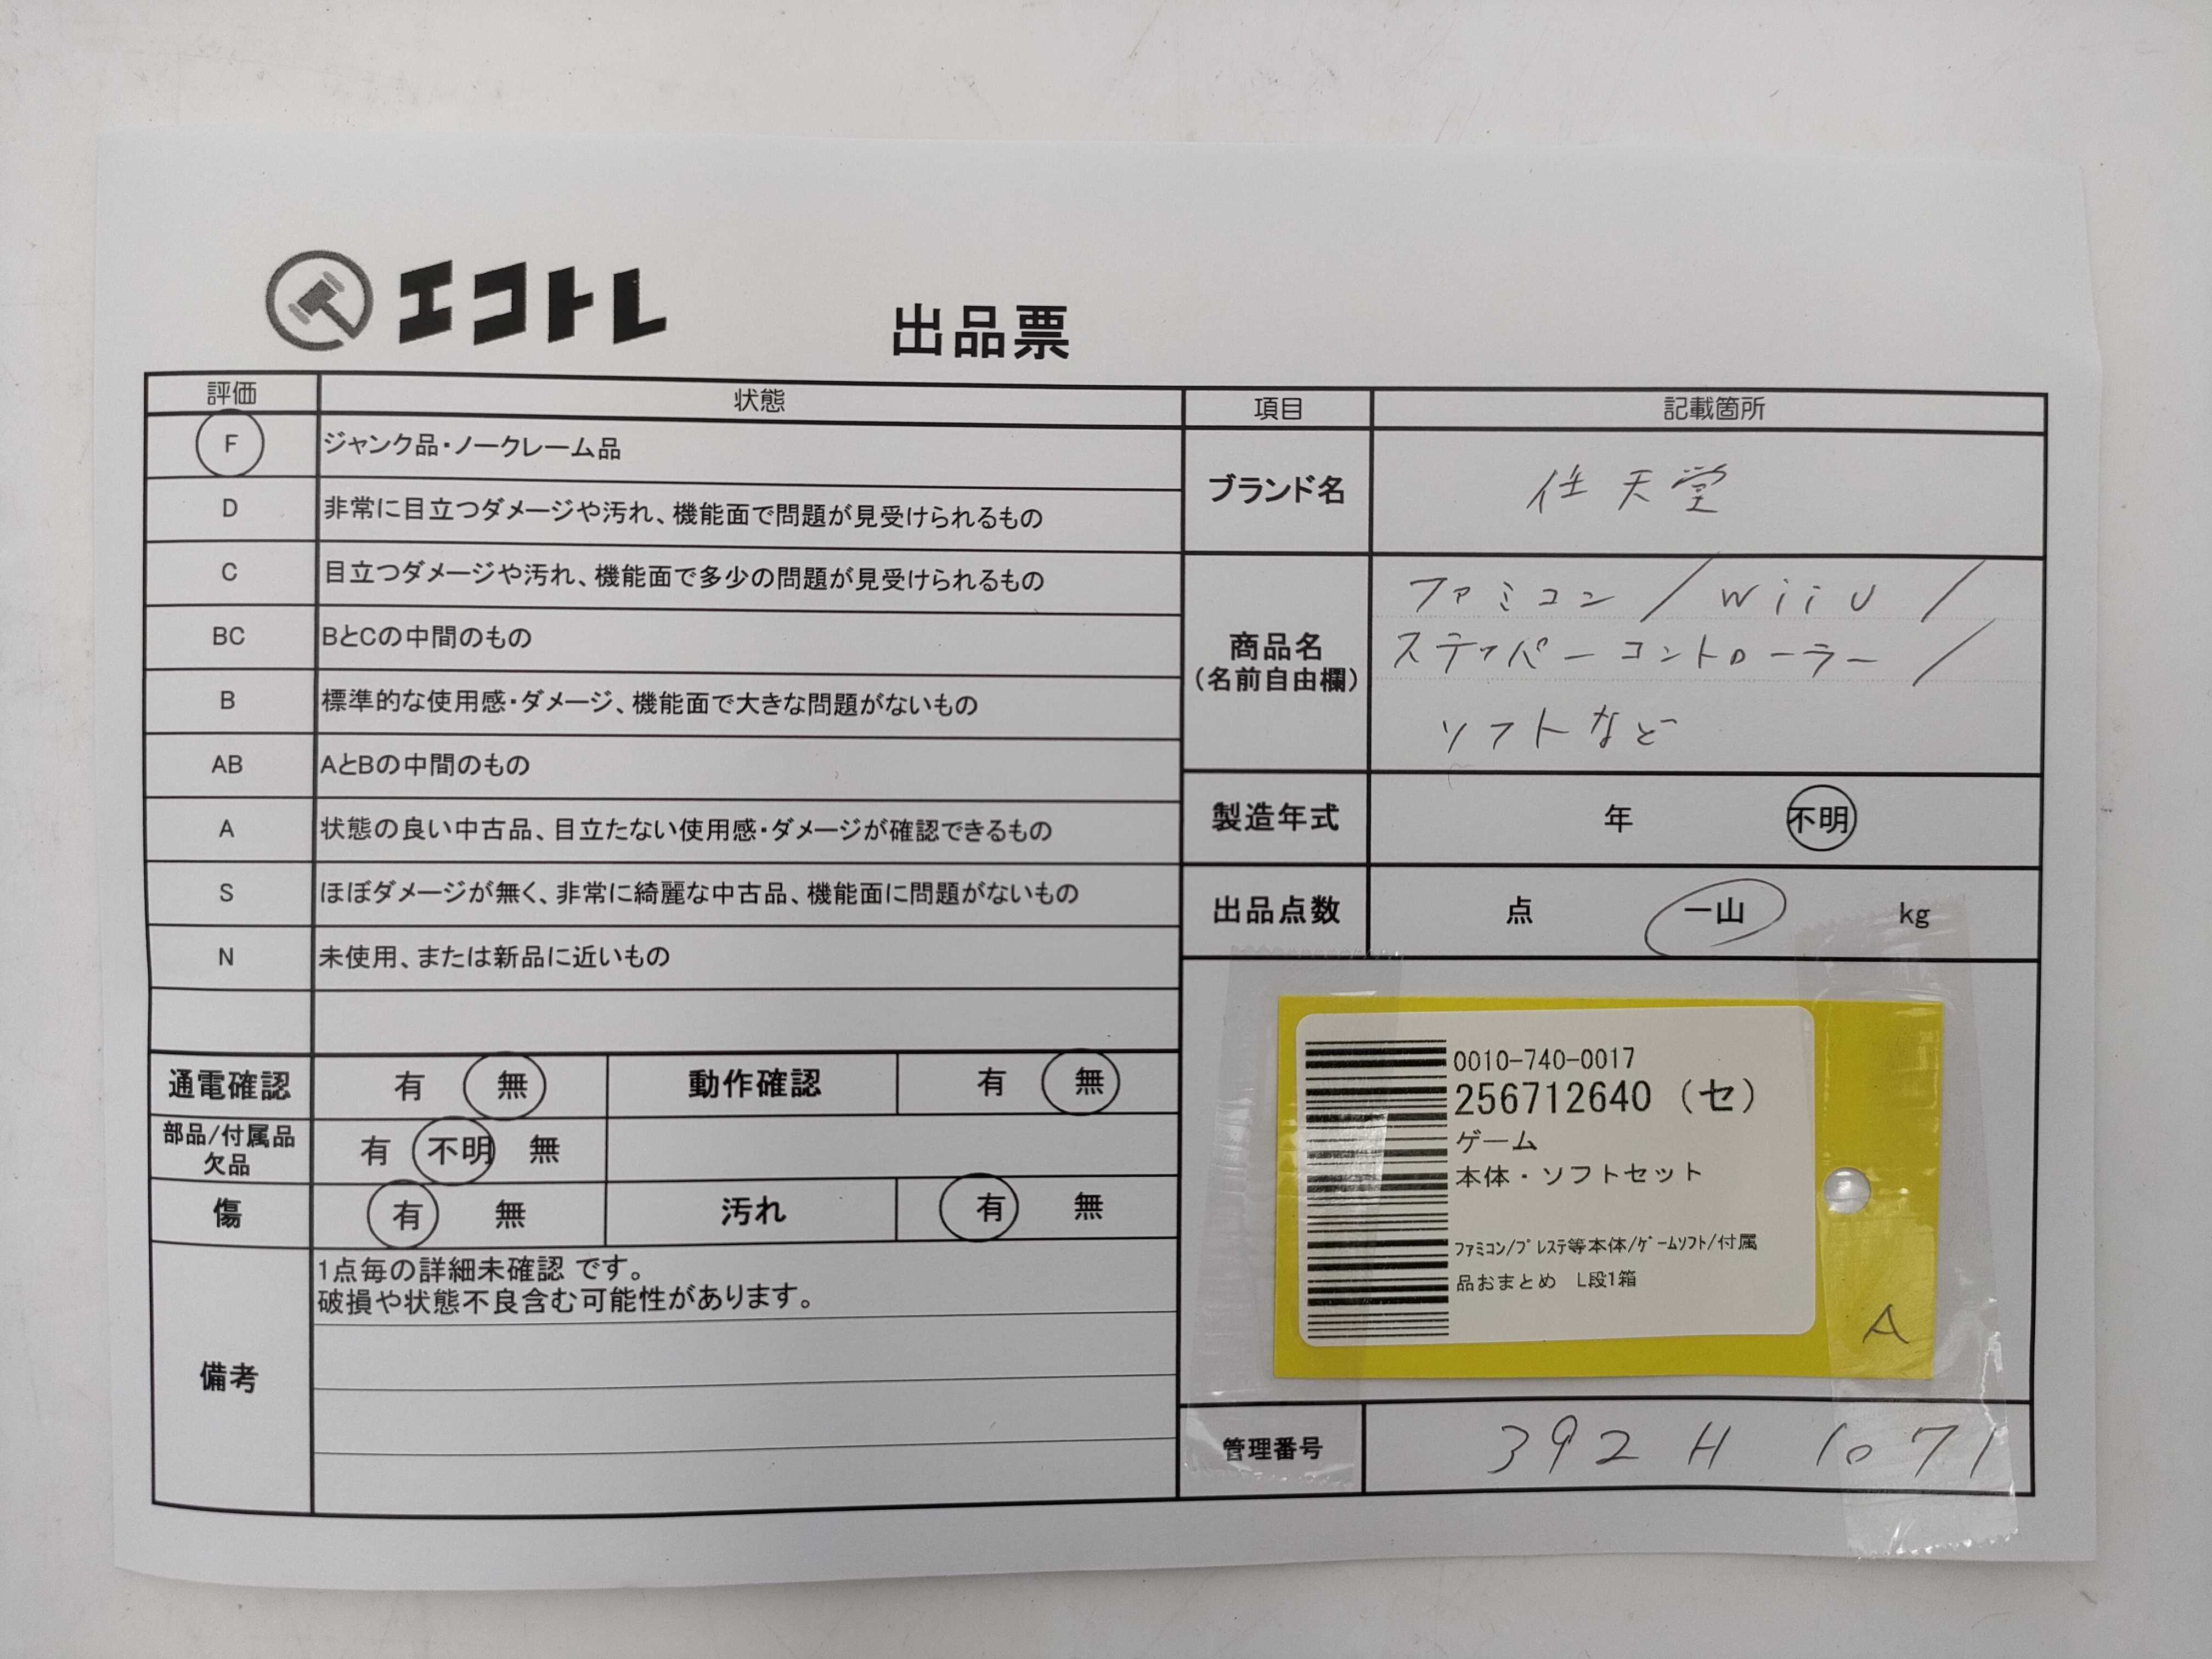 エコトレ
出品票
評価 状態
F ジャンク品・ノークレーム品
D 非常に目立つダメージや汚れ、機能面で問題が見受けられるもの
C 目立つダメージや汚れ、機能面で多少の問題が見受けられるもの
BC BとCの中間のもの
B 標準的な使用感・ダメージ、機能面で大きな問題がないもの
AB AとBの中間のもの
A 状態の良い中古品、目立たない使用感・ダメージが確認できるもの
S ほぼダメージが無く、非常に綺麗な中古品、機能面に問題がないもの
N 未使用、または新品に近いもの
通電確認 有 無 動作確認 有 無
部品/付属品
欠品 有 不明 無
傷 有 無 汚れ 有 無
備考
1点毎の詳細未確認 です。
破損や状態不良含む可能性があります。
項目 記載箇所
ブランド名 任天堂
商品名
(名前自由欄)
ファミコン/WiiU/
ステッパーコントローラー/
ソフトなど
製造年式 年 不明
出品点数 点 一山 kg
0010-740-0017
256712640 (セ)
ゲーム
本体・ソフトセット
ファミコン/プレステ等本体/ゲームソフト/付属
品おまとめ L段1箱
A
管理番号 392H 1071